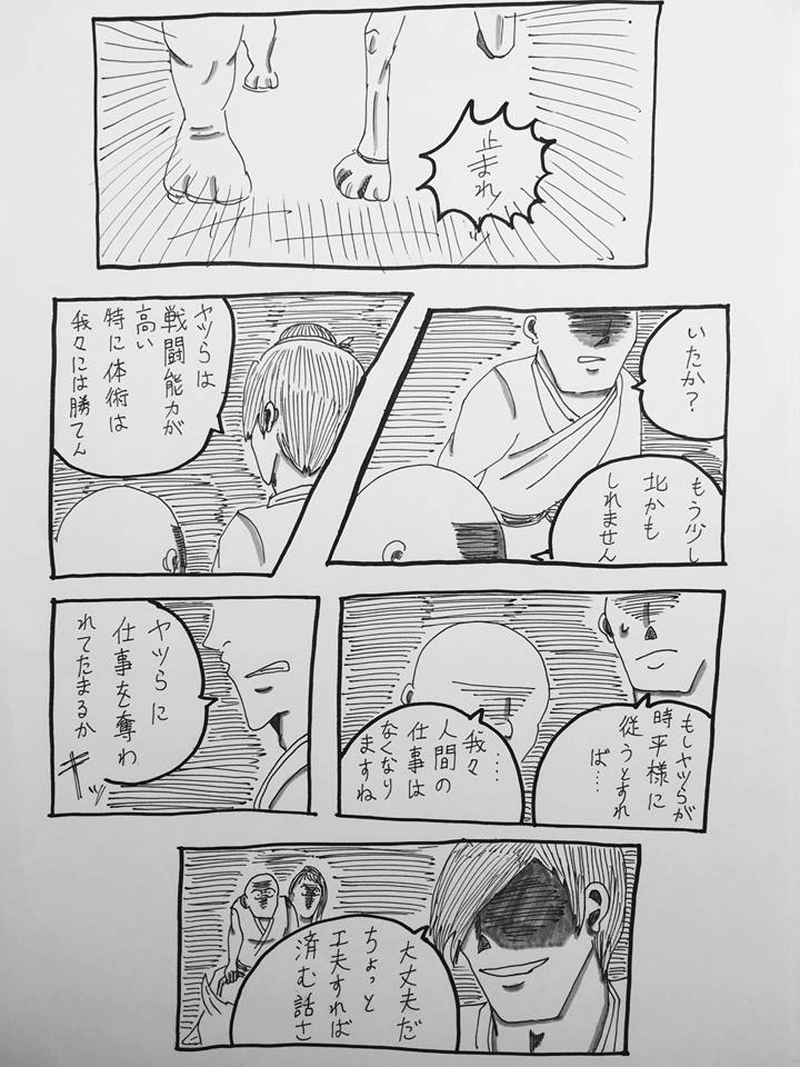 止まれ!
いたか?
もう少し
北かも
しれません
ヤツらは
戦闘能力が
高い
特に体術は
我々には勝てん
もしヤツらが
時平様に
従うとすれ
ば…
……
我々
人間の
仕事は
なくなり
ますね
ヤツらに
仕事を奪わ
れてたまるか
キッ
大丈夫だ
ちょっと
工夫すれば
済む話さ